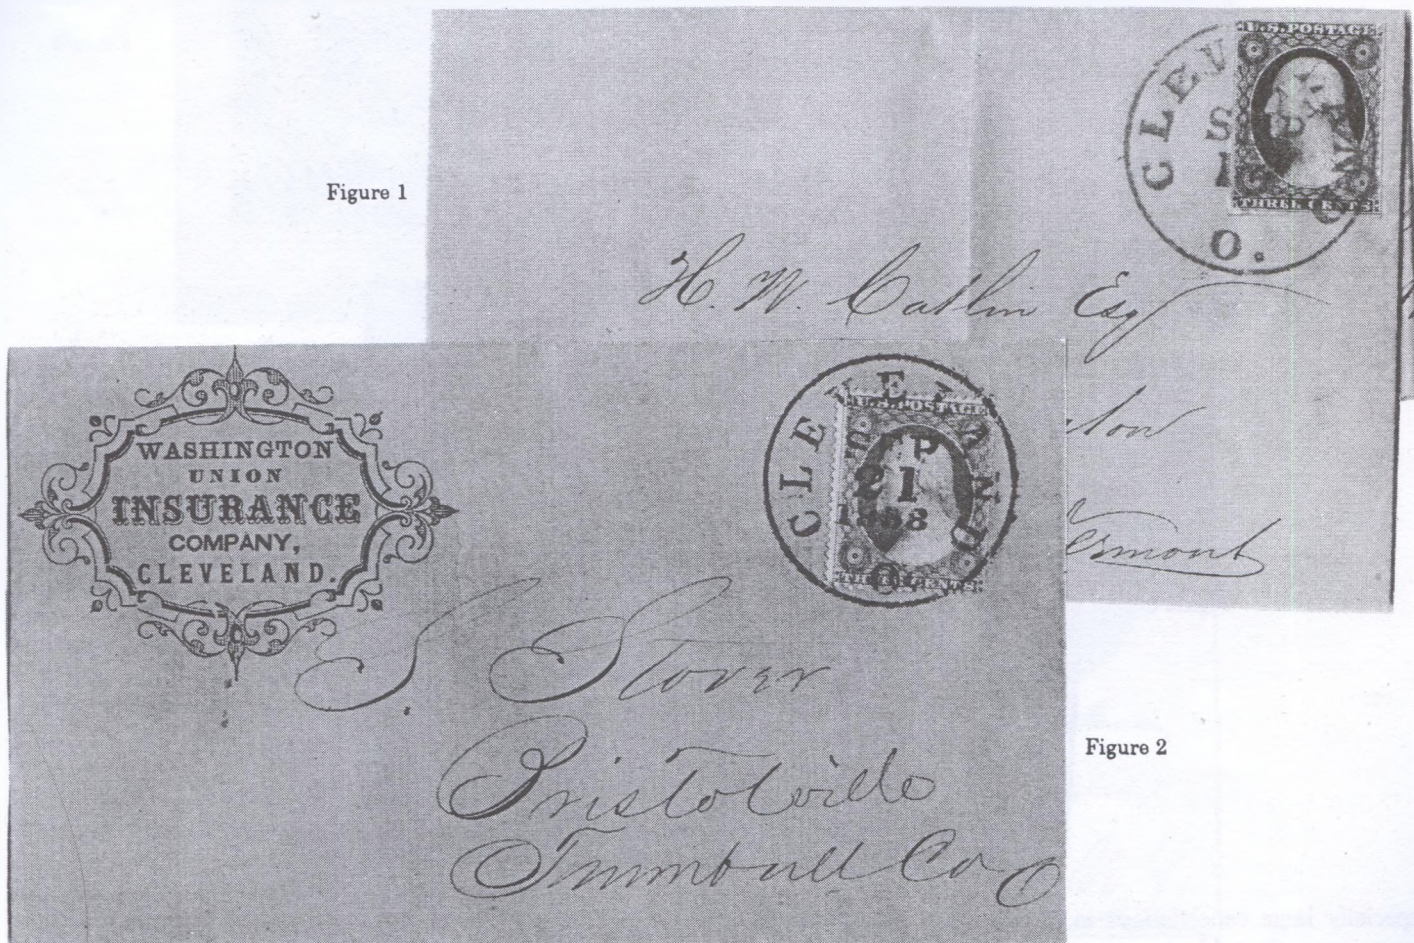 Figure 1
CLEVELAND
O.
U.S. POSTAGE
THREE CENTS
H. W. Catlin Esq
Vermont
WASHINGTON
UNION
INSURANCE
COMPANY,
CLEVELAND.
CLEVELAND
SEP
21
1858
O
U.S. POSTAGE
THREE CENTS
S Stover
Bristolville
Trumbull Co O
Figure 2